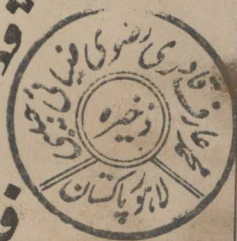 محمد عارف قادری رضوی ضیائی
ذخیرہ
لاہور پاکستان